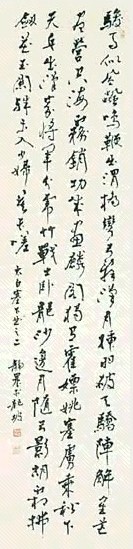 駿馬似風飆鳴鞭出渭橋彎弓辭漢月插羽破天驕陣解星芒
盡營空海霧銷功成畫麟閣獨有霍嫖姚塞虜乘秋下
天兵出漢家將軍分虎竹戰士臥龍沙邊月隨弓影胡霜拂
劍花玉關殊未入少婦莫長嗟 太白塞下曲之二